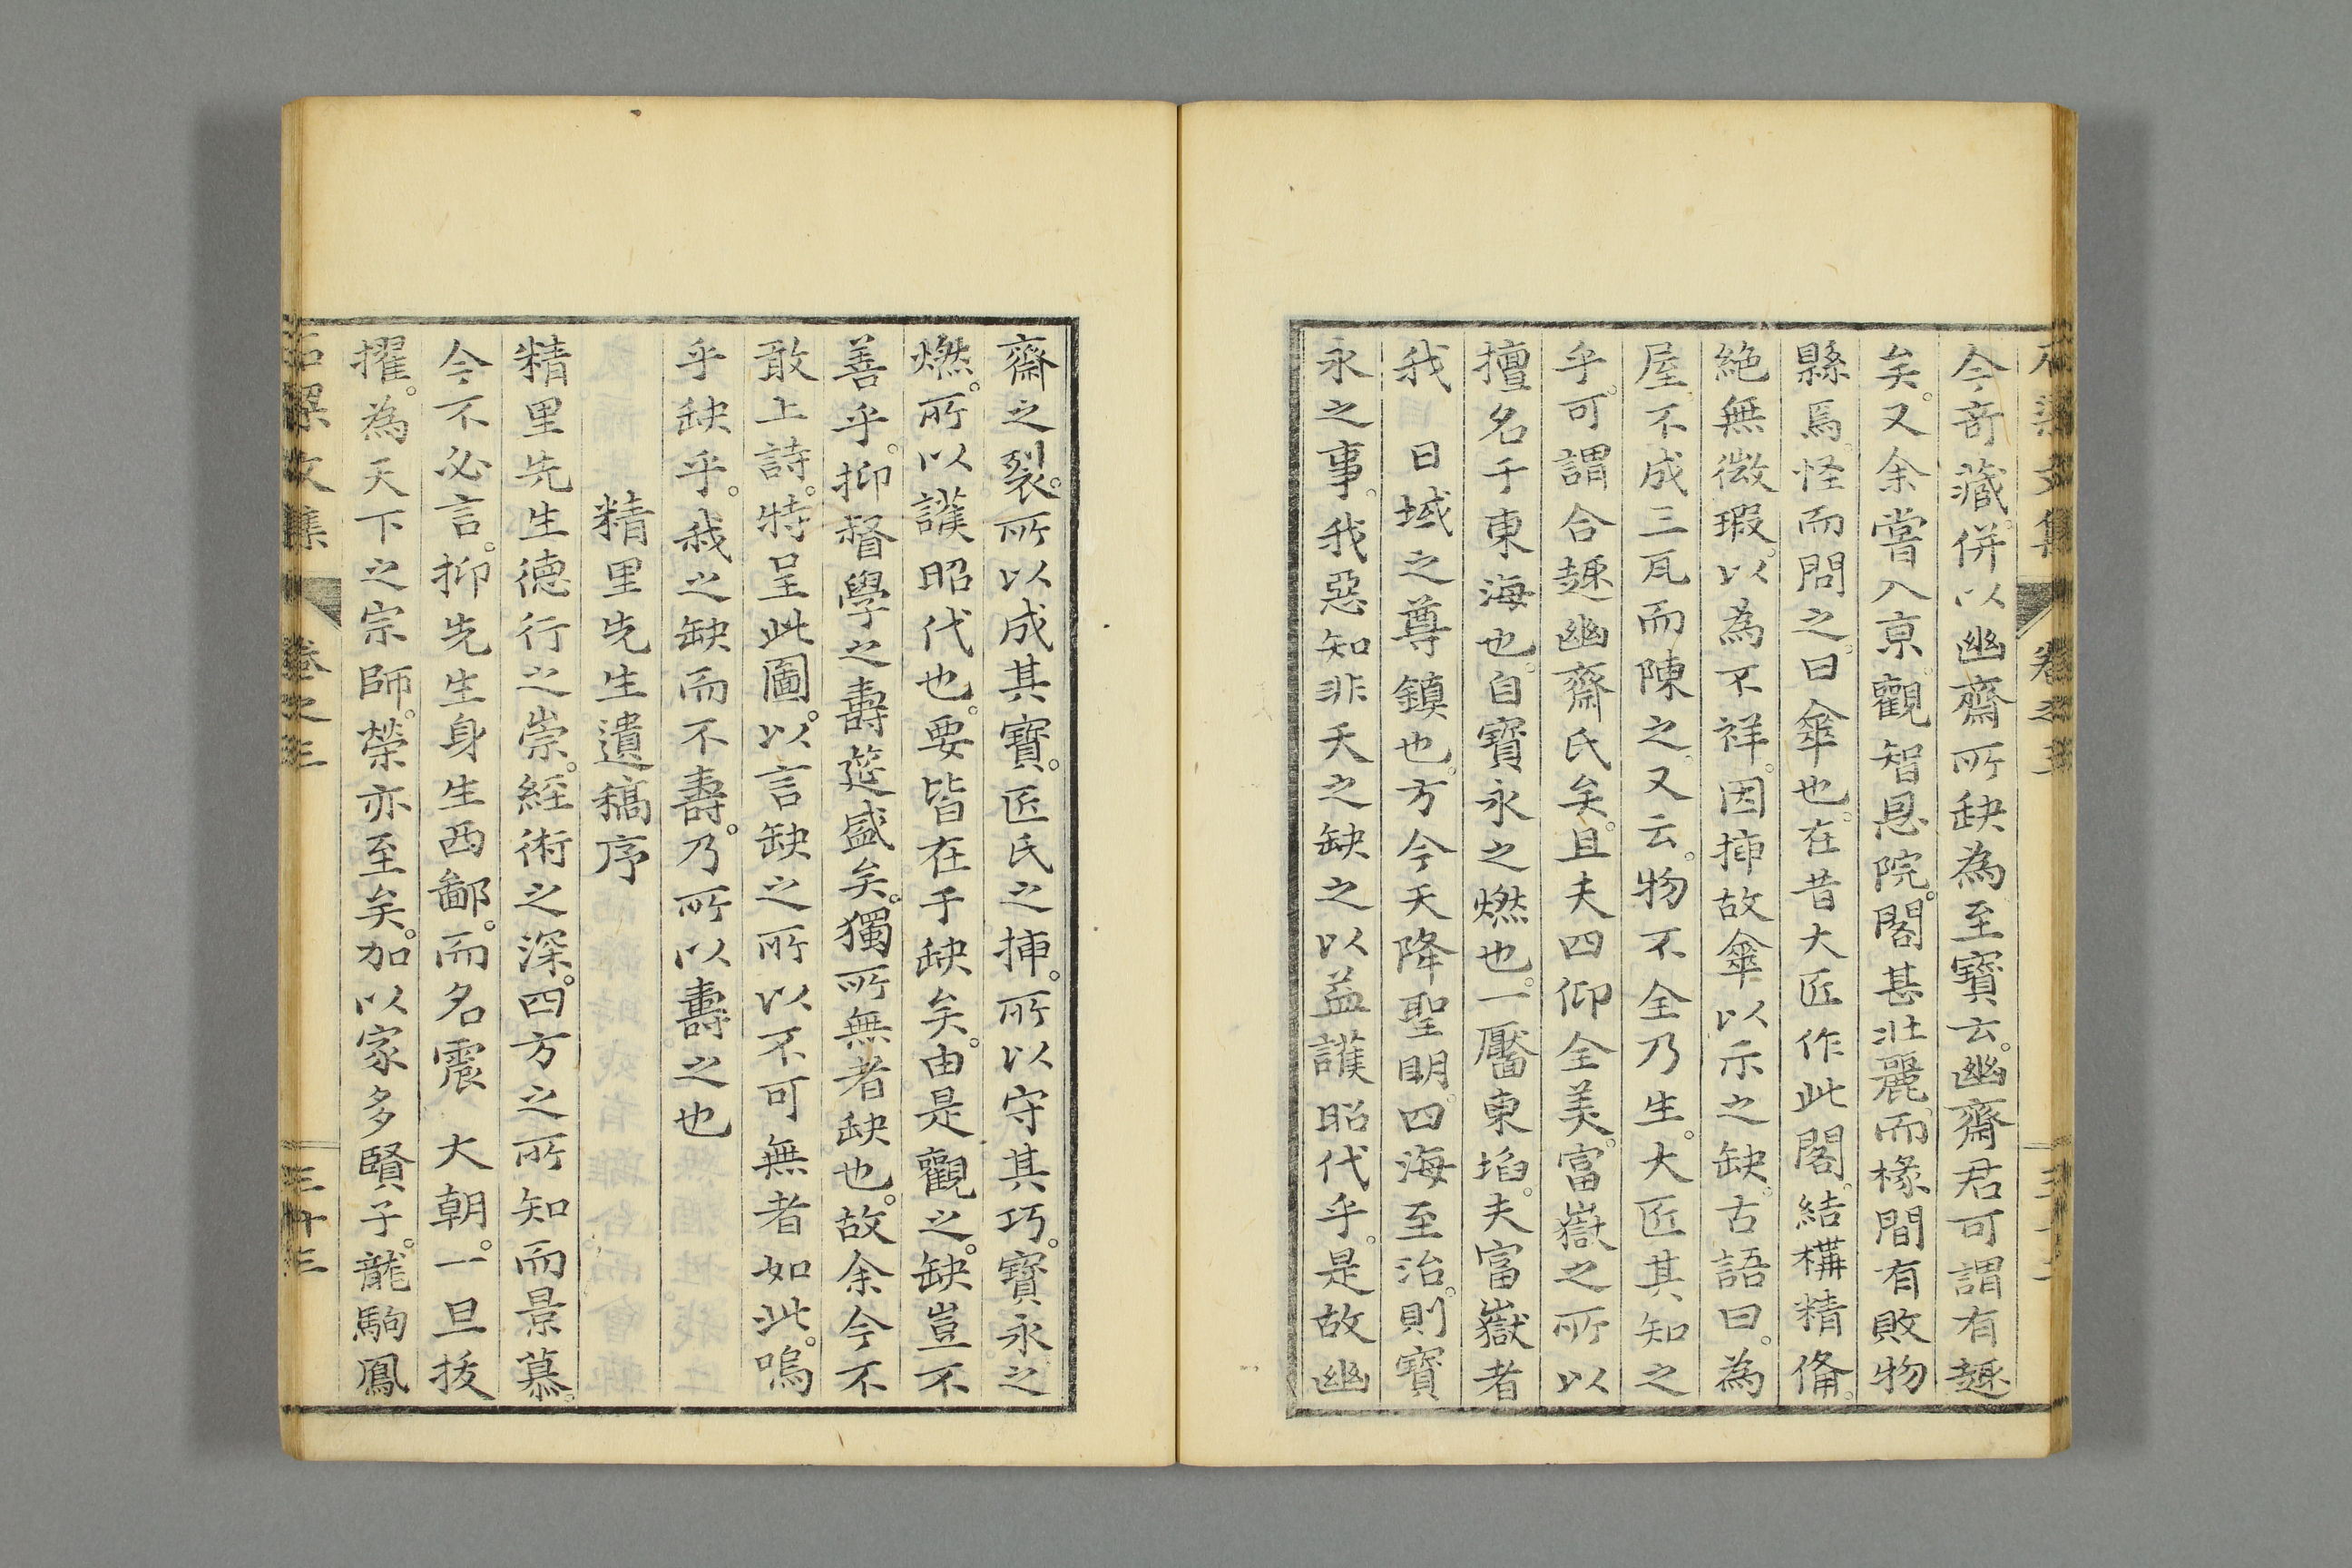 今奇藏。併以幽齋所缺為至寶云。幽齋君可謂有趣
矣。又余嘗入京。觀智恩院。閣甚壯麗。而椽間有敗物
縣焉。怪而問之。曰傘也。在昔大匠作此閣。結構精俻。
絕無微瑕。以為不祥。因挿故傘以示之缺。古語曰。為
屋不成三瓦而陳之。又云。物不全乃生。大匠其知之
乎。可謂合趣幽齋氏矣。且夫四仰全美。富嶽之所以
擅名于東海也。自寶永之燃也。一靨東㘿。夫富嶽者
我 日域之尊鎮也。方今天降聖明。四海至治。則寶
永之事。我惡知非天之缺之以益護昭代乎。是故幽
齋之裂。所以成其寶。匠氏之挿。所以守其巧。寶永之
燃。所以護昭代也。要皆在于缺矣。由是觀之。缺豈不
善乎。抑督學之壽筵盛矣。獨所無者缺也。故余今不
敢上詩。特呈此圖。以言缺之所以不可無者如此。嗚
乎缺乎。我之缺而不壽。乃所以壽之也
精里先生遺稿序
精里先生德行之崇。經術之深。四方之所知而景慕。
今不必言。抑先生身生西鄙。而名震 大朝。一旦拔
擢。為天下之宗師。榮亦至矣。加以家多賢子。龍駒鳳
文集 卷之三 三十三